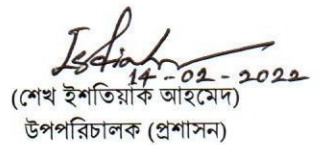 14-02-2022
(শেখ ইশতিয়াক আহমেদ)
উপপরিচালক (প্রশাসন)